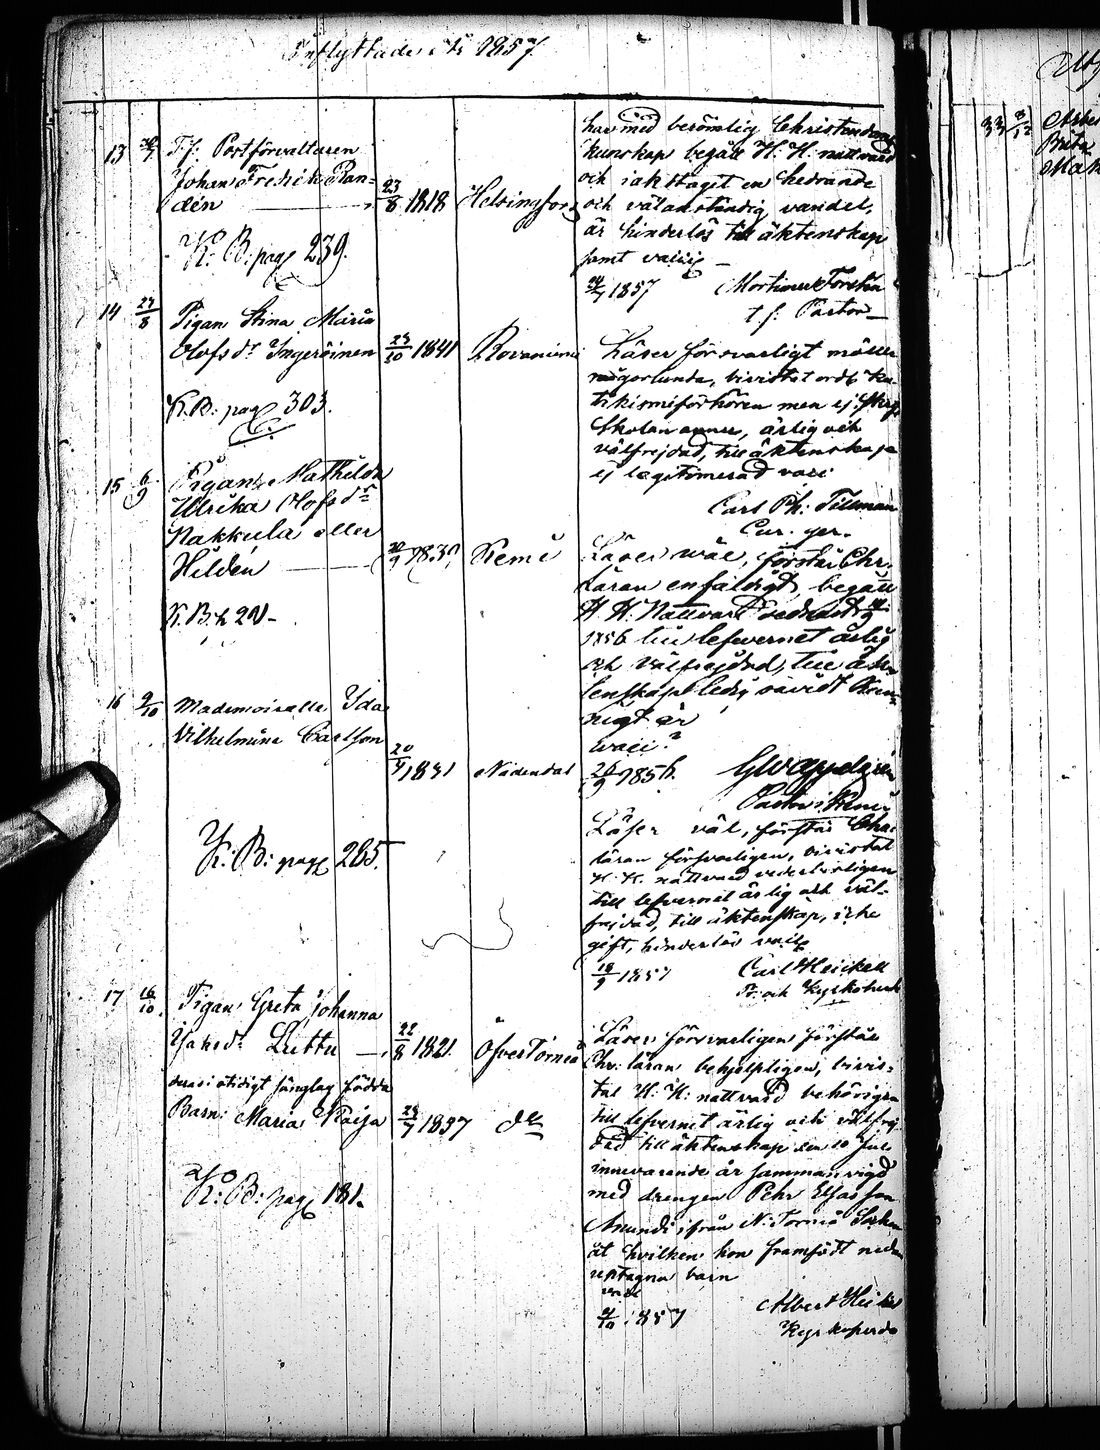 Inflyttade år 1857
13
T.f. Postförvaltaren
Johan Fredrik Ran=
dén
23/8 1818 Helsingfors
K: B: pag 239.
har med berömlig Christendoms
kunskap begått H. H. nattvard
och iakttagit en hedrande
och välanständig vandel,
är hinderlös till äktenskap
samt
1857 Mortimer Forstén
t.f. Pastor
14 27/8 Pigan Stina Maria
Olofsdr Ingeröinen 1841 Rovaniemi
K.B: pag 303.
Läser försvarligt
någorlunda, bivistat ordt. ka-
tekismiförhören men ej skrift
skolan ännu, ärlig och
välfrejdad, till äktenskap
ej legitimerad vari
Carl Ph: Tillman
15 6/9 Pigan Mathilda
Ulrika Olofsdr
Nakkula eller
Hildén Kemi
K.B.
Läser wäl, förstår Chr.
läran enfaldigt, begått
H. H. Nattvard sednast
1856 till lefvernet ärlig
och välfrejdad, till äk-
tenskap ledig såvidt
är
26/9 1856.
16 9/10 Mademoiselle Ida
Vilhelmina Carlson
20/4 1831 Nådendal
K: B: pag 285.
Läser väl, förstår Chr.
läran försvarligen, bivistat
H. H. nattvard vederbörligen
till lefvernet ärlig och väl-
frejdad, till äktenskap, icke
gift, hinderlös
18/9 1857 Carl Heickell
Pr: och Kyrkoherde
17 16/10 Pigan Greta Johanna
Isaksdr Luttu 22/8 1821. Öfver Torneå
födda
Barn: Maria Kaisa 1857 do
K: B: pag 181.
Läser försvarligen förstår
Chr: läran behjelpligen, bivis=
tat H: H: nattvard behörigen
till lefvernet ärlig och välfrej
dad till äktenskap den 10 Juli
innevarande år sammanvigd
med drengen Pehr Elfasson
Anundi ifrån N: Torneå Sockn
åt hvilken hon framfödt nedan
upptagna barn
1857 Albert Heickel